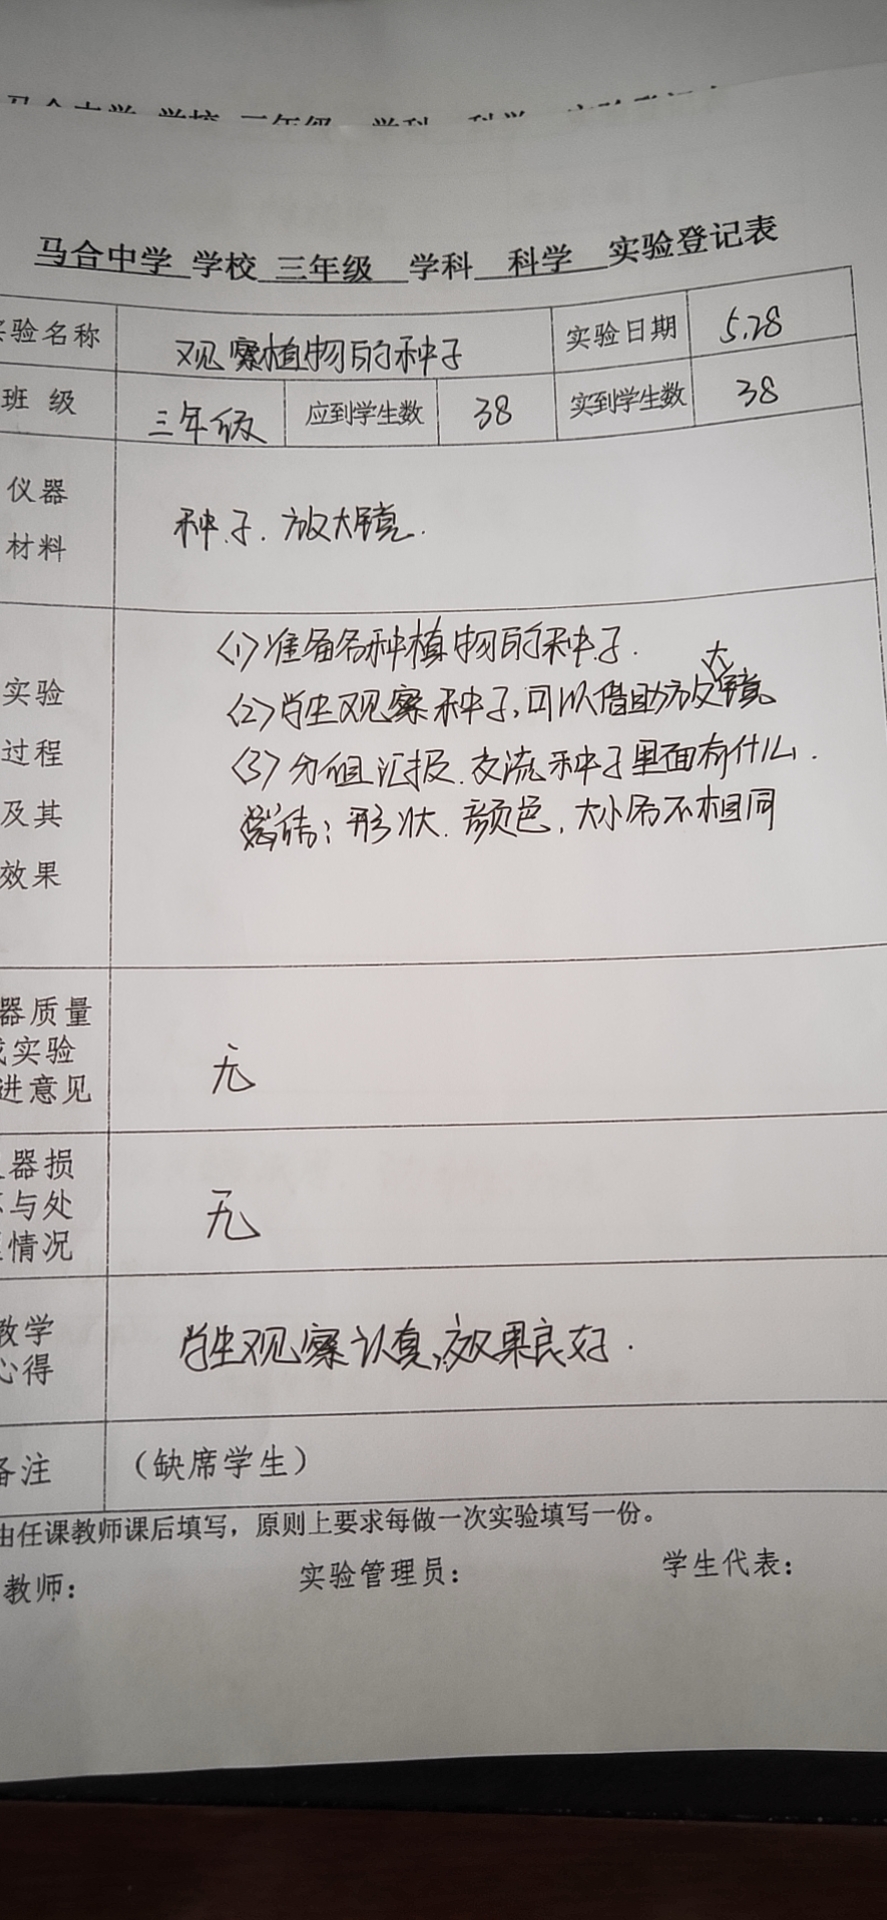 马合中学 学校 三年级 学科 科学 实验登记表
验名称 观察植物的种子 实验日期 5.28
班 级 三年级 应到学生数 38 实到学生数 38
仪器
材料
种子. 放大镜.
实验
过程
及其
效果
(1)准备各种植物的种子.
(2)学生观察种子,可以借助放大镜
(3)分组汇报.交流种子里面有什么.
:形状.颜色,大小各不相同
器质量
实验
进意见
无
器损
与处
情况
无
教学
心得
学生观察认真,效果良好.
备注 (缺席学生)
由任课教师课后填写,原则上要求每做一次实验填写一份。
教师: 实验管理员: 学生代表: